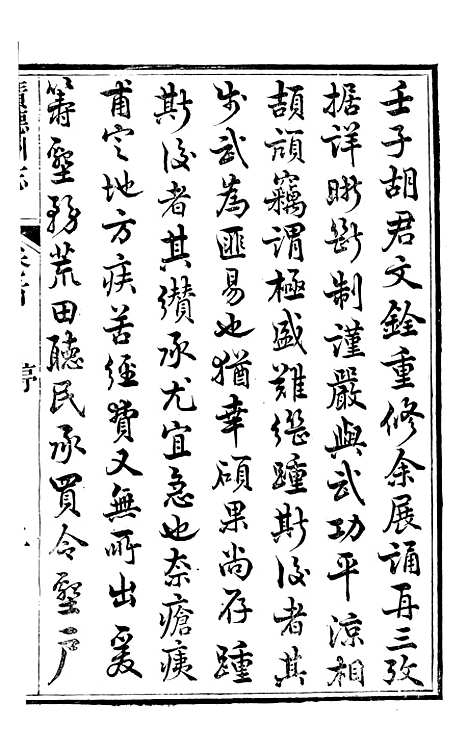 壬子胡君文銓重修余展誦再三攷
据詳晰斷制謹嚴與武功平涼相
頡頏竊謂極盛難繼踵斯後者其
步武為匪易也猶幸碩果尚存踵
斯後者其纘承尤宜急也奈瘡痍
甫定地方疾苦經費又無所出爰
籌墾務荒田聽民承買令墾戶
廣德州志
卷首
序